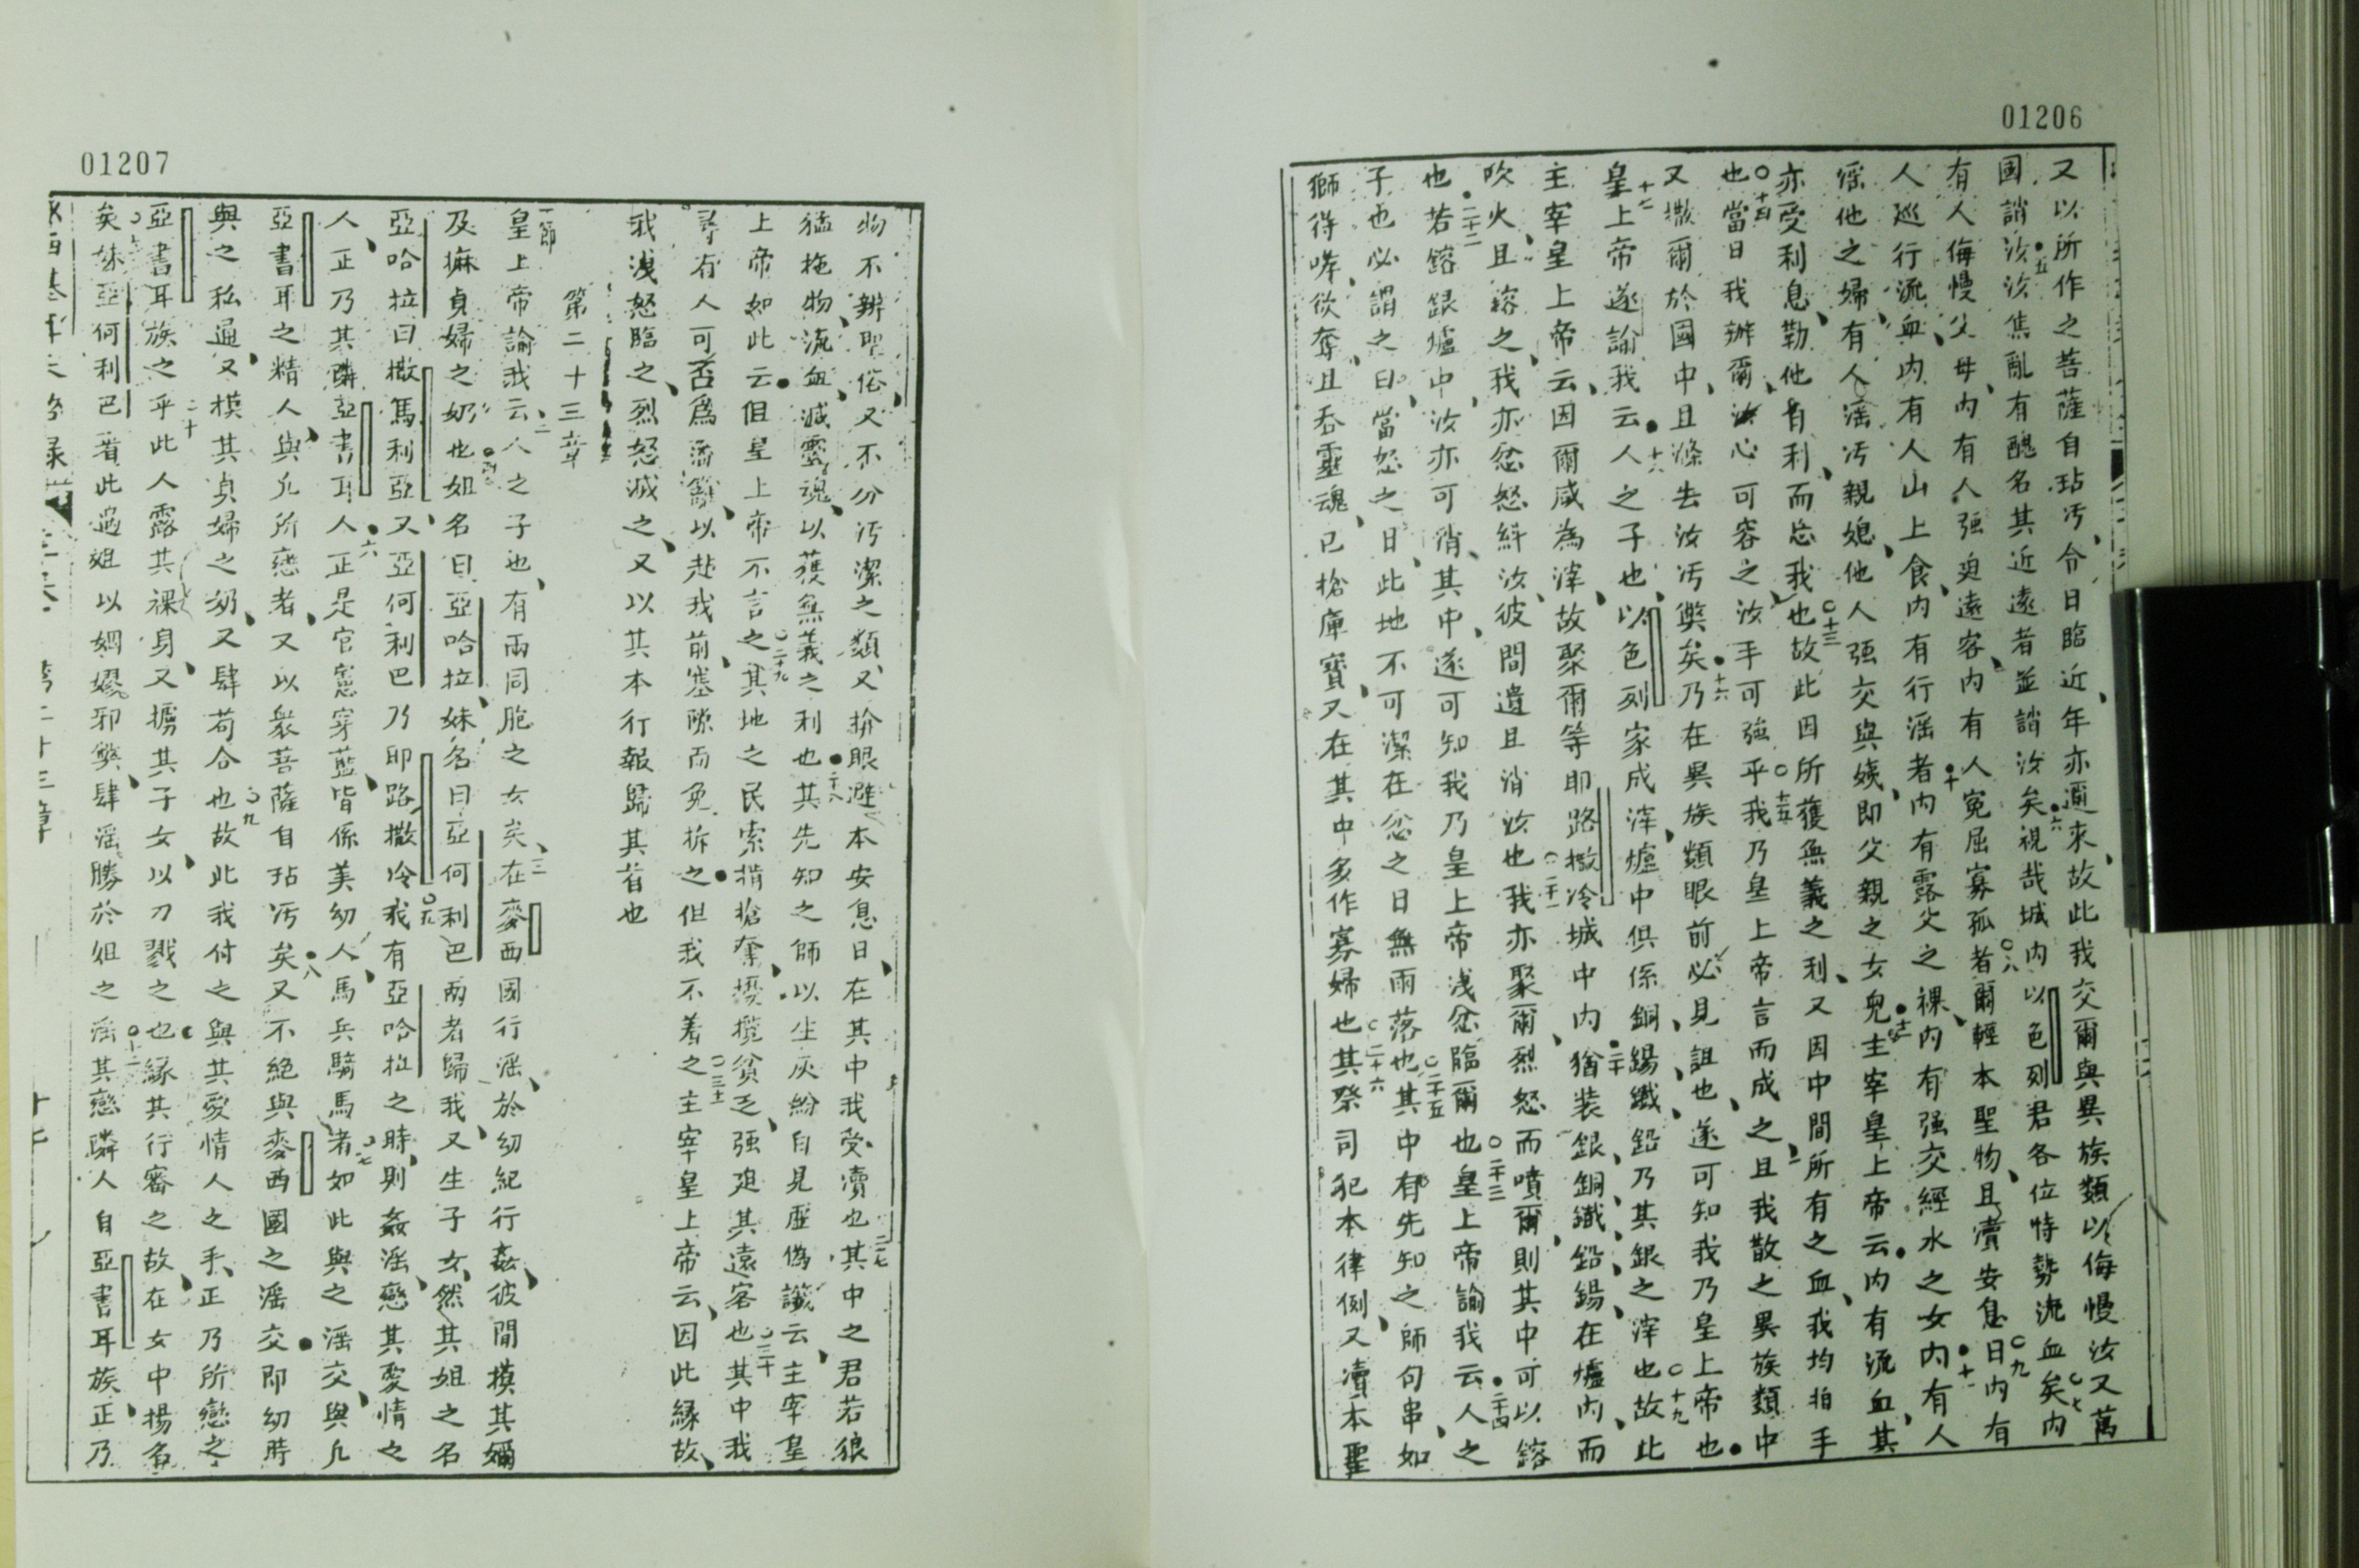 01206
又以所作之菩薩自玷汚今日臨近年亦邇來故此我交爾與異族類以侮慢汝又萬
國誚汝汝焦亂有醜名其近遠者並誚汝矣視哉城内以色列君各位恃勢流血矣内
有人侮慢父母内有人强迫遠客内有人寃屈寡孤者爾輕本聖物且瀆安息日内有
人巡行流血内有人山上食内有行滛者内有露父之裸内有强交經水之女内有人
滛他之婦有人滛汚親媳他人强交與姨即父親之女兒主宰皇上帝云内有流血其
亦受利息勒他自利而忘我也故此因所獲無義之利又因中間所有之血我均拍手
也當日我辦爾汝心可容之汝手可強乎我乃皇上帝言而成之且我散之異族類中
又撒爾於國中且滌去汝汚獘矣乃在異族類眼前必見詛也遂可知我乃皇上帝也
皇上帝遂諭我云人之子也以色列家成滓爐中俱係銅錫鐵鉛乃其銀之滓也故此
主宰皇上帝云因爾咸為滓故聚爾等耶路撒冷城中内猶装銀銅鐵鉛錫在爐内而
吹火且鎔之我亦忿怒斜汝彼間遺且消汝也我亦聚爾烈怒而噴爾則其中可以鎔
也若鎔銀爐中汝亦可消其中遂可知我乃皇上帝洩忿臨爾也皇上帝諭我云人之
子也必謂之曰當怒之日此地不可潔在忿之日無雨落也其中有先知之師句串如
獅得哮欲奪且吞靈魂已槍庫寳又在其中多作寡婦也其祭司犯本律例又瀆本聖
01207
物不辨聖俗又不分汚潔之類又掩眼避本安息日在其中我受瀆也其中之君若狼
猛拖物流血滅靈魂以獲無義之利也其先知之師以生灰紛自見歴偽讖云主宰皇
上帝如此云但皇上帝不言之其地之民索揩搶奪擾攬貧乏强廹其遠客也其中我
尋有人可否爲藩籬以赴我前塞隙而免拆之但我不着之主宰皇上帝云因此縁故
我洩怒臨之烈怒滅之又以其本行報歸其首也
第二十三章
皇上帝諭我云人之子也有兩同胞之女矣在麥西國行滛於幼紀行姦彼間摸其嬭
及摵貞婦之奶也姐名曰亞哈拉妹名曰亞何利巴兩者歸我又生子女然其姐之名
亞哈拉曰撒馬利亞又亞何利巴乃耶路撒冷我有亞哈拉之時則姦滛戀其愛情之
人正乃其鄰亞書耳人正是官憲穿藍皆係美幼人馬兵騎馬者如此與之滛交與凢
亞書耳之精人與凢所戀者又以衆菩薩自玷汚矣又不絕與麥西國之滛交即幼時
與之私通又摸其貞婦之奶又肆苟合也故此我付之與其愛情人之手正乃所戀之
亞書耳族之乎此人露其裸身又擄其子女以刀戮之也縁其行審之故在女中揚名
矣妹亞何利巴看此過姐以婤嫪邪獘肆滛勝於姐之滛其戀鄰人自亞書耳族正乃